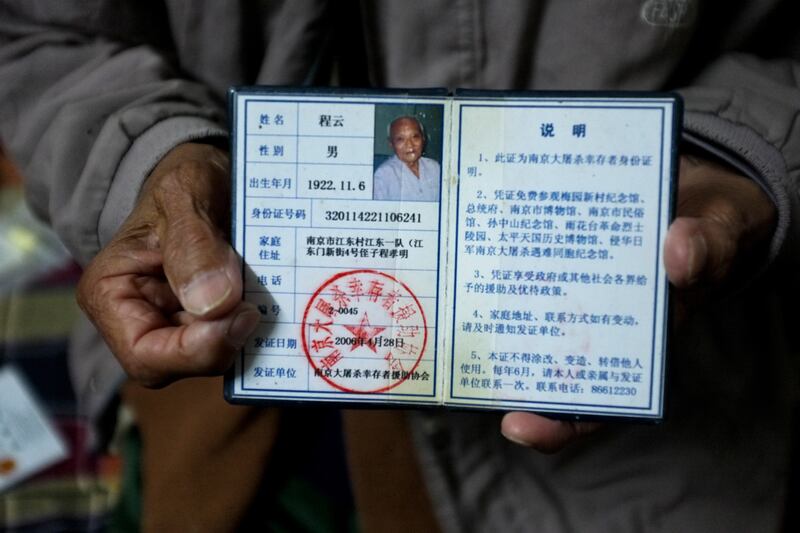 姓名 程云
性别 男
出生年月 1922.11.6
身份证号码 320114221106241
家庭 南京市江东村江东一队（江
住址 东门新街4号侄子程孝明
电话
编号 2-0045
发证日期 2006年4月28日
发证单位 南京大屠杀幸存者援助协会
南京大屠杀幸存者援助协会
说明
1、此证为南京大屠杀幸存者身份证
明。
2、凭证免费参观梅园新村纪念馆、
总统府、南京市博物馆、南京市民俗
馆、孙中山纪念馆、雨花台革命烈士
陵园、太平天国历史博物馆、侵华日
军南京大屠杀遇难同胞纪念馆。
3、凭证享受政府或其他社会各界给
予的援助及优待政策。
4、家庭地址、联系方式如有变动，
请及时通知发证单位。
5、本证不得涂改、变造、转借他人
使用。每年6月，请本人或亲属与发证
单位联系一次。联系电话：86612230